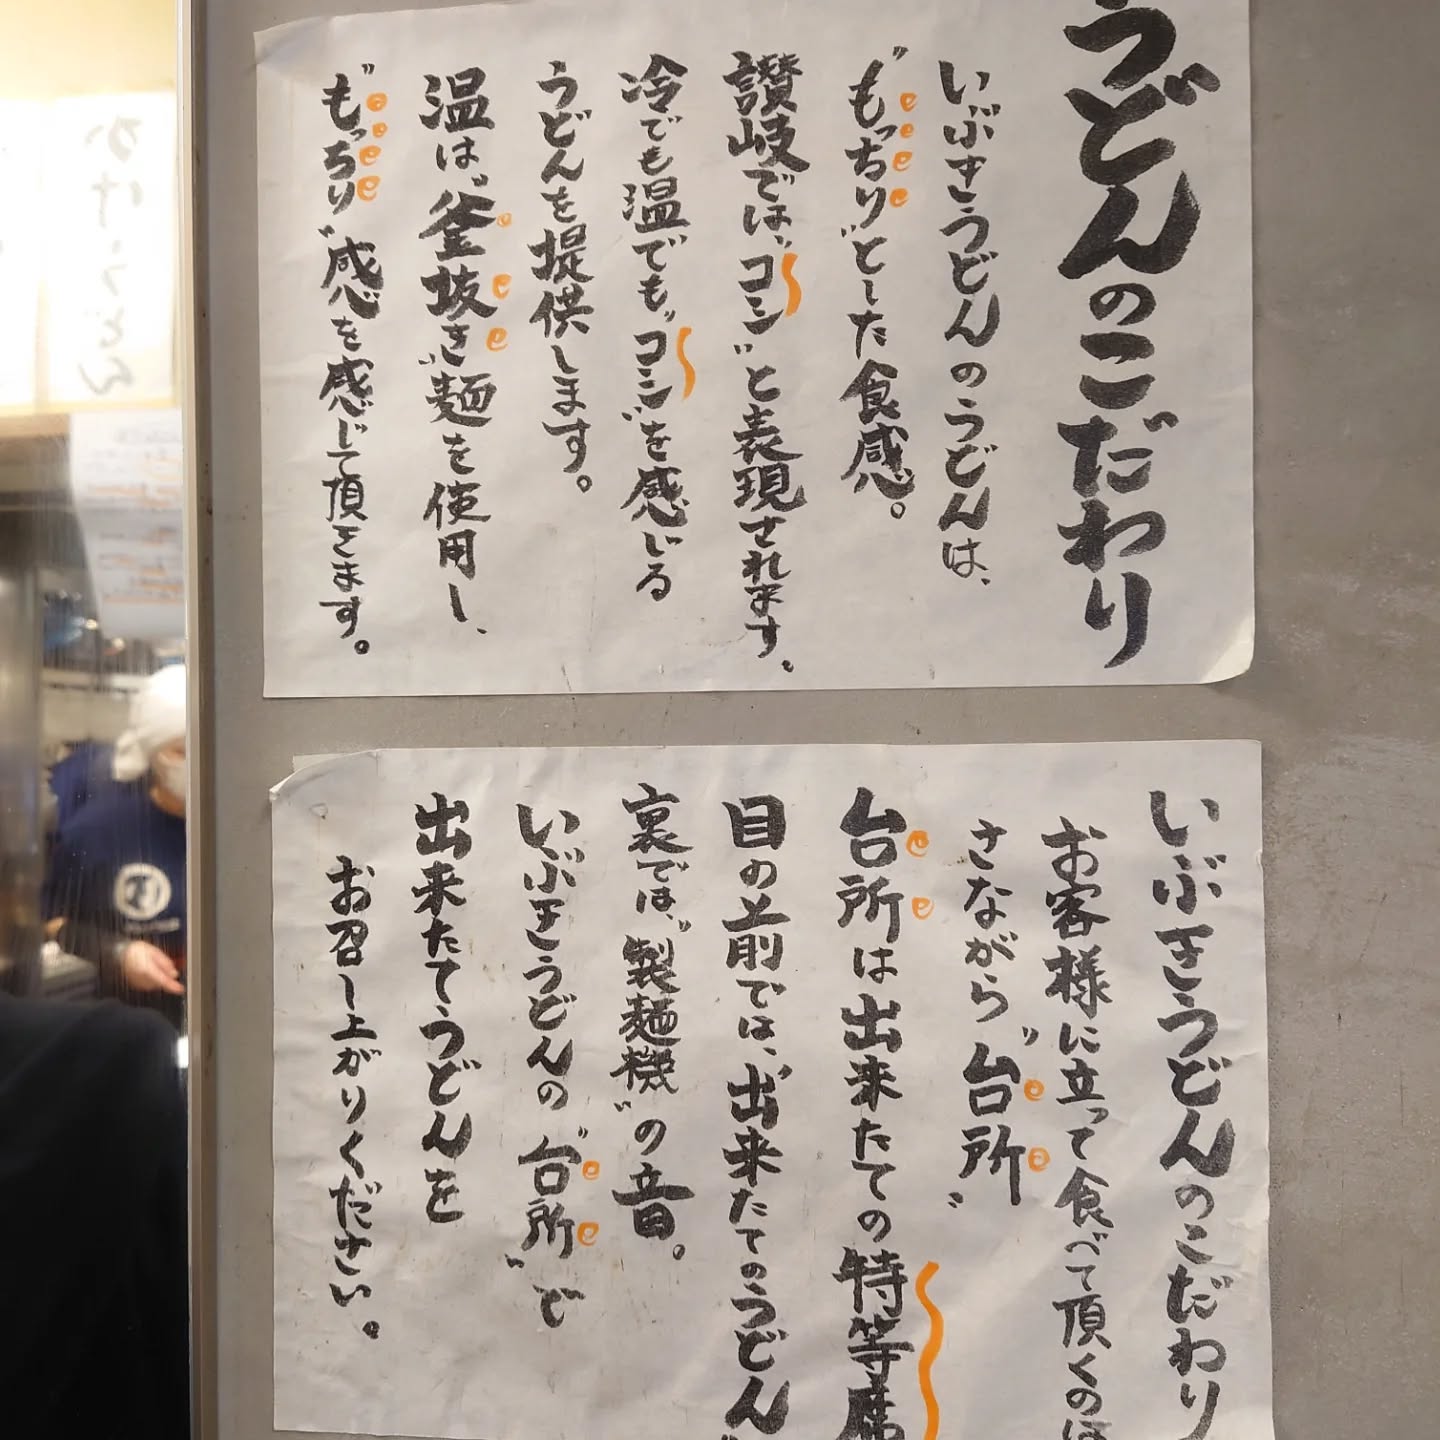 うどんのこだわり
いぶきうどんのうどんは、
"もっちり"とした食感。
讃岐では、"コシ"と表現されます。
冷でも温でも"コシ"を感じる
うどんを提供します。
温は、"釜抜き"麺を使用し、
"もっちり"感を感じて頂きます。
いぶきうどんのこだわり
お客様に立って食べて頂くのは
さながら"台所"
台所は出来たての特等席
目の前では、"出来たてのうどん"
裏では、"製麺機"の音。
いぶきうどんの"台所"で
出来たてうどんを
お召し上がりください。
かけうどん